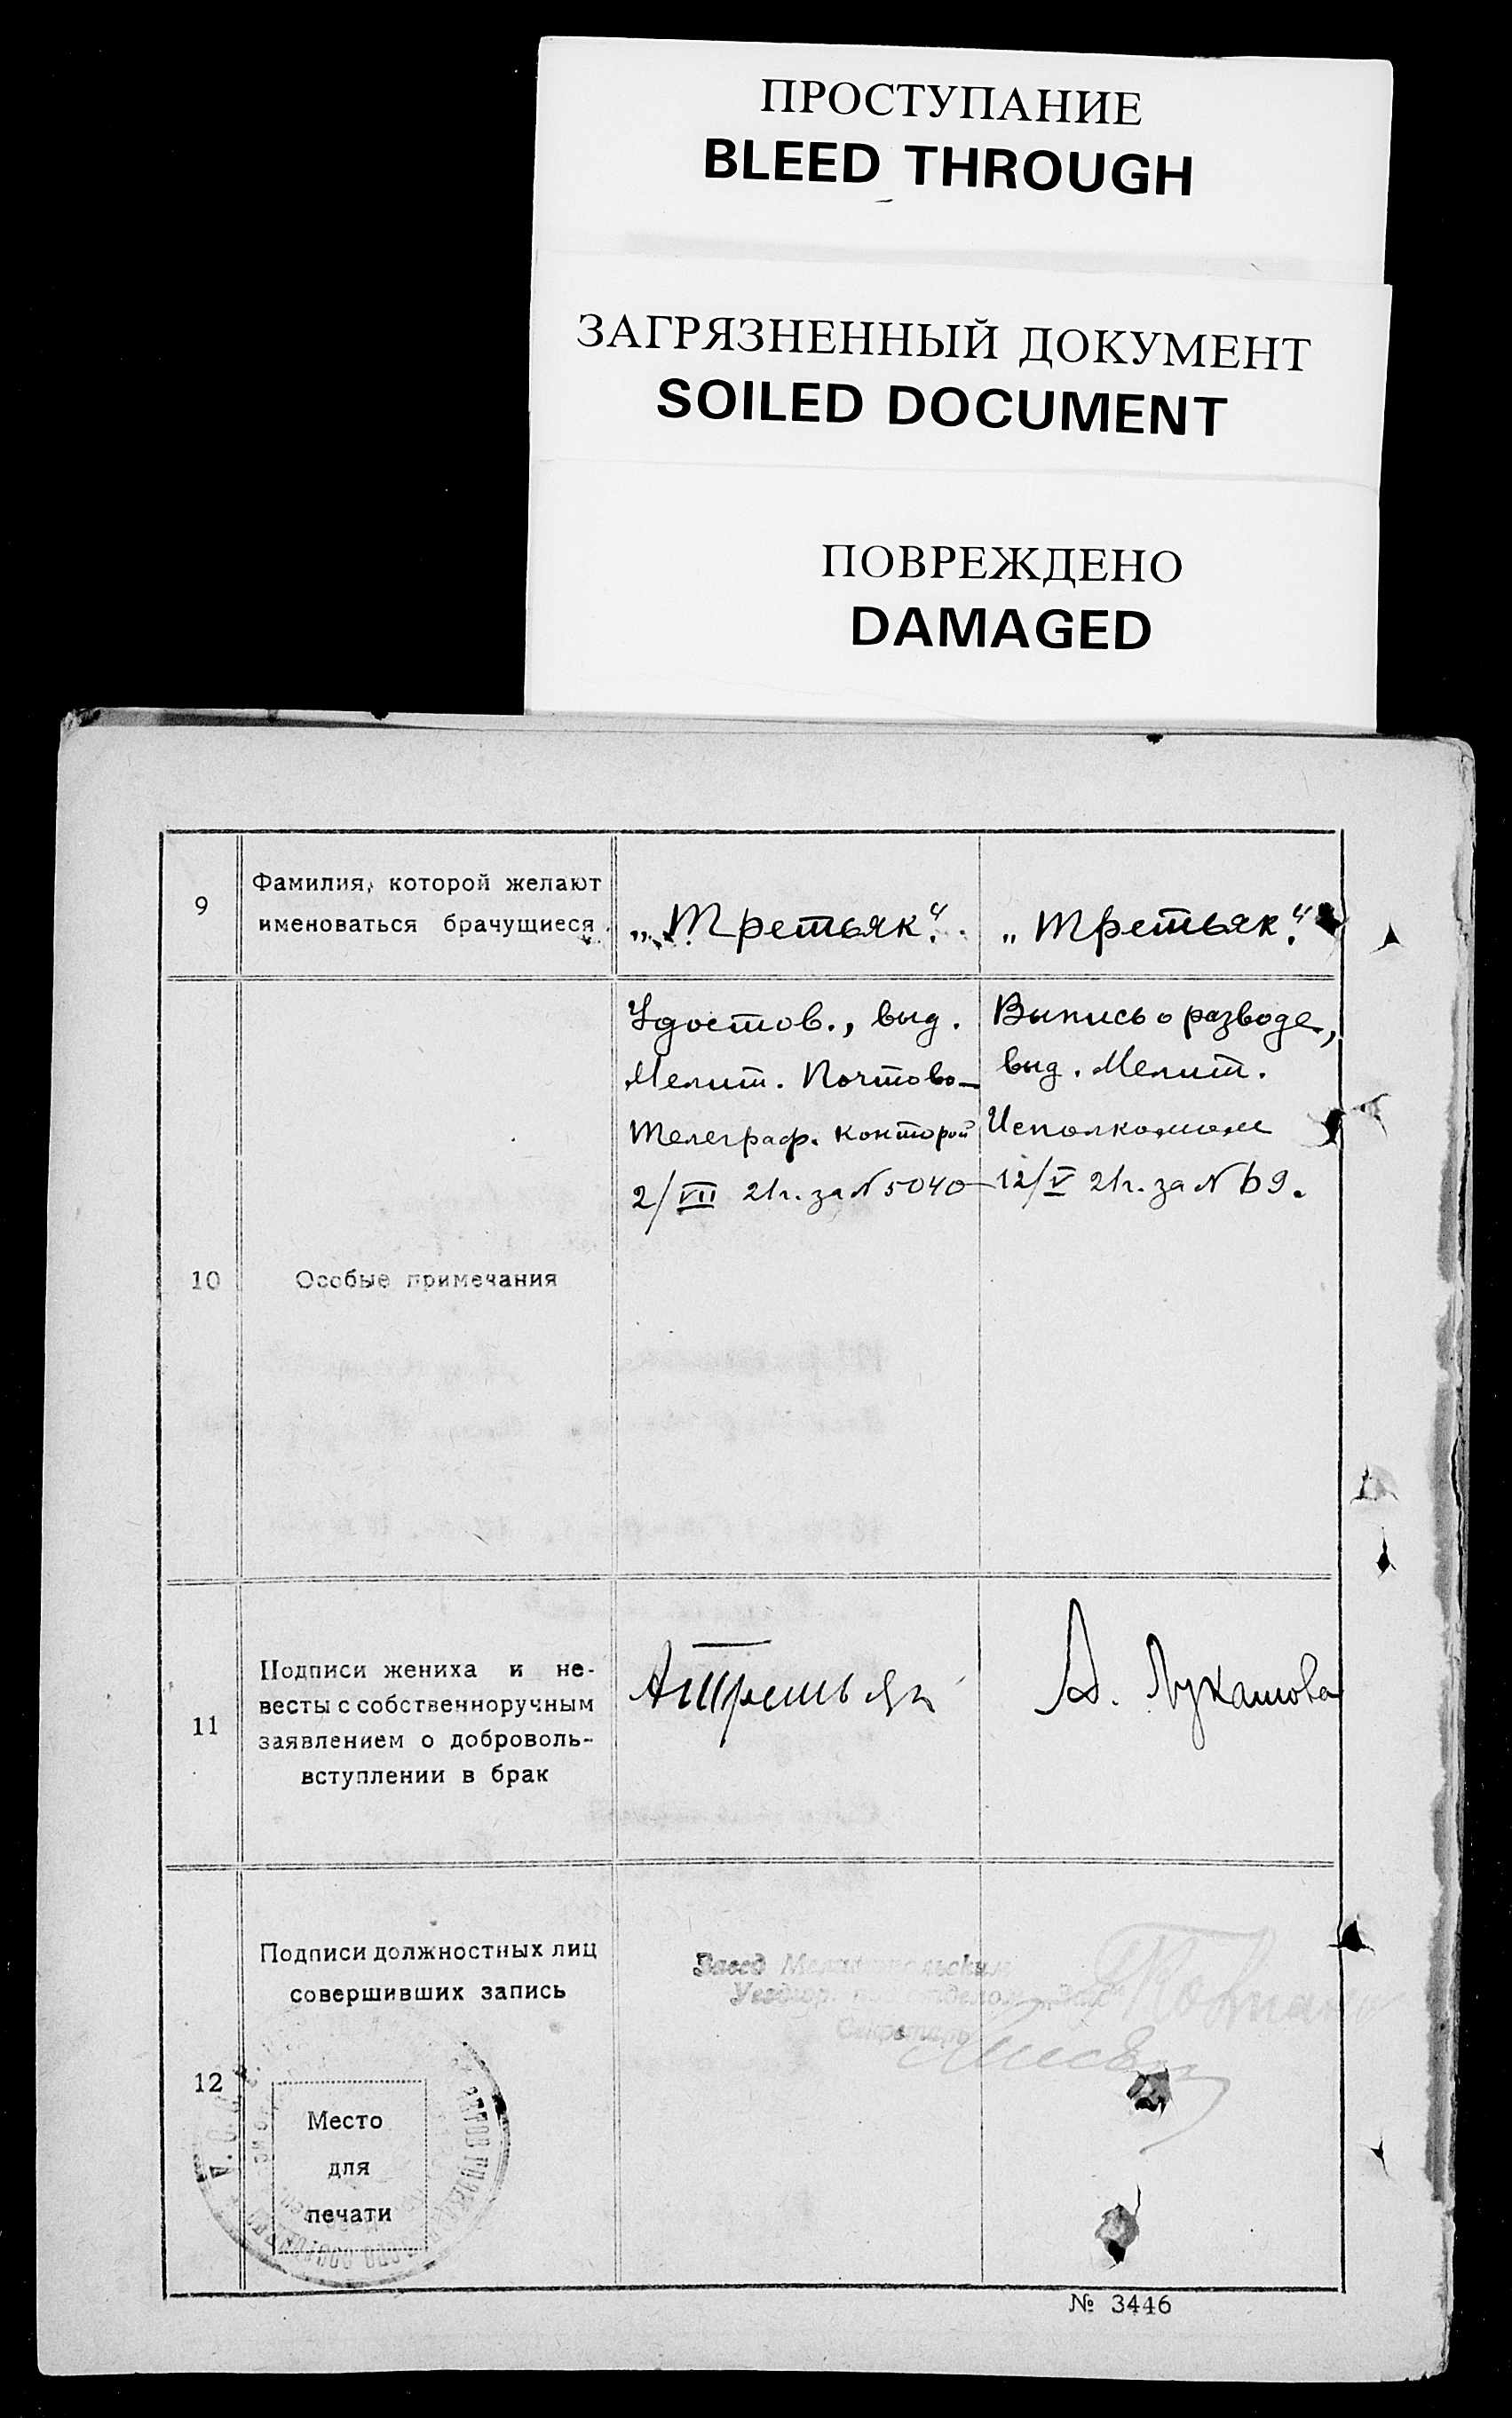 ПРОСТУПАНИЕ
BLEED THROUGH
ЗАГРЯЗНЕННЫЙ ДОКУМЕНТ
SOILED DOCUMENT
ПОВРЕЖДЕНО
DAMAGED
9
Фамилия, которой желают
именоваться брачущиеся
„Третьяк“.
„Третьяк“.
10
Особые примечания
Удостов., выд.
Мелит. Почтово-
Телеграф. конторой
2/VII 21г. за N 5040
Выпись о разводе,
выд. Мелит.
Исполкомом
12/V 21г. за N 69.
11
Подписи жениха и не-
весты с собственноручным
заявлением о доброволь-
вступлении в брак
АТретьяк
А. Лукашова
12
Подписи должностных лиц
совершивших запись
Завед Мелитопольским
Секретарь
Место
для
печати
№ 3446